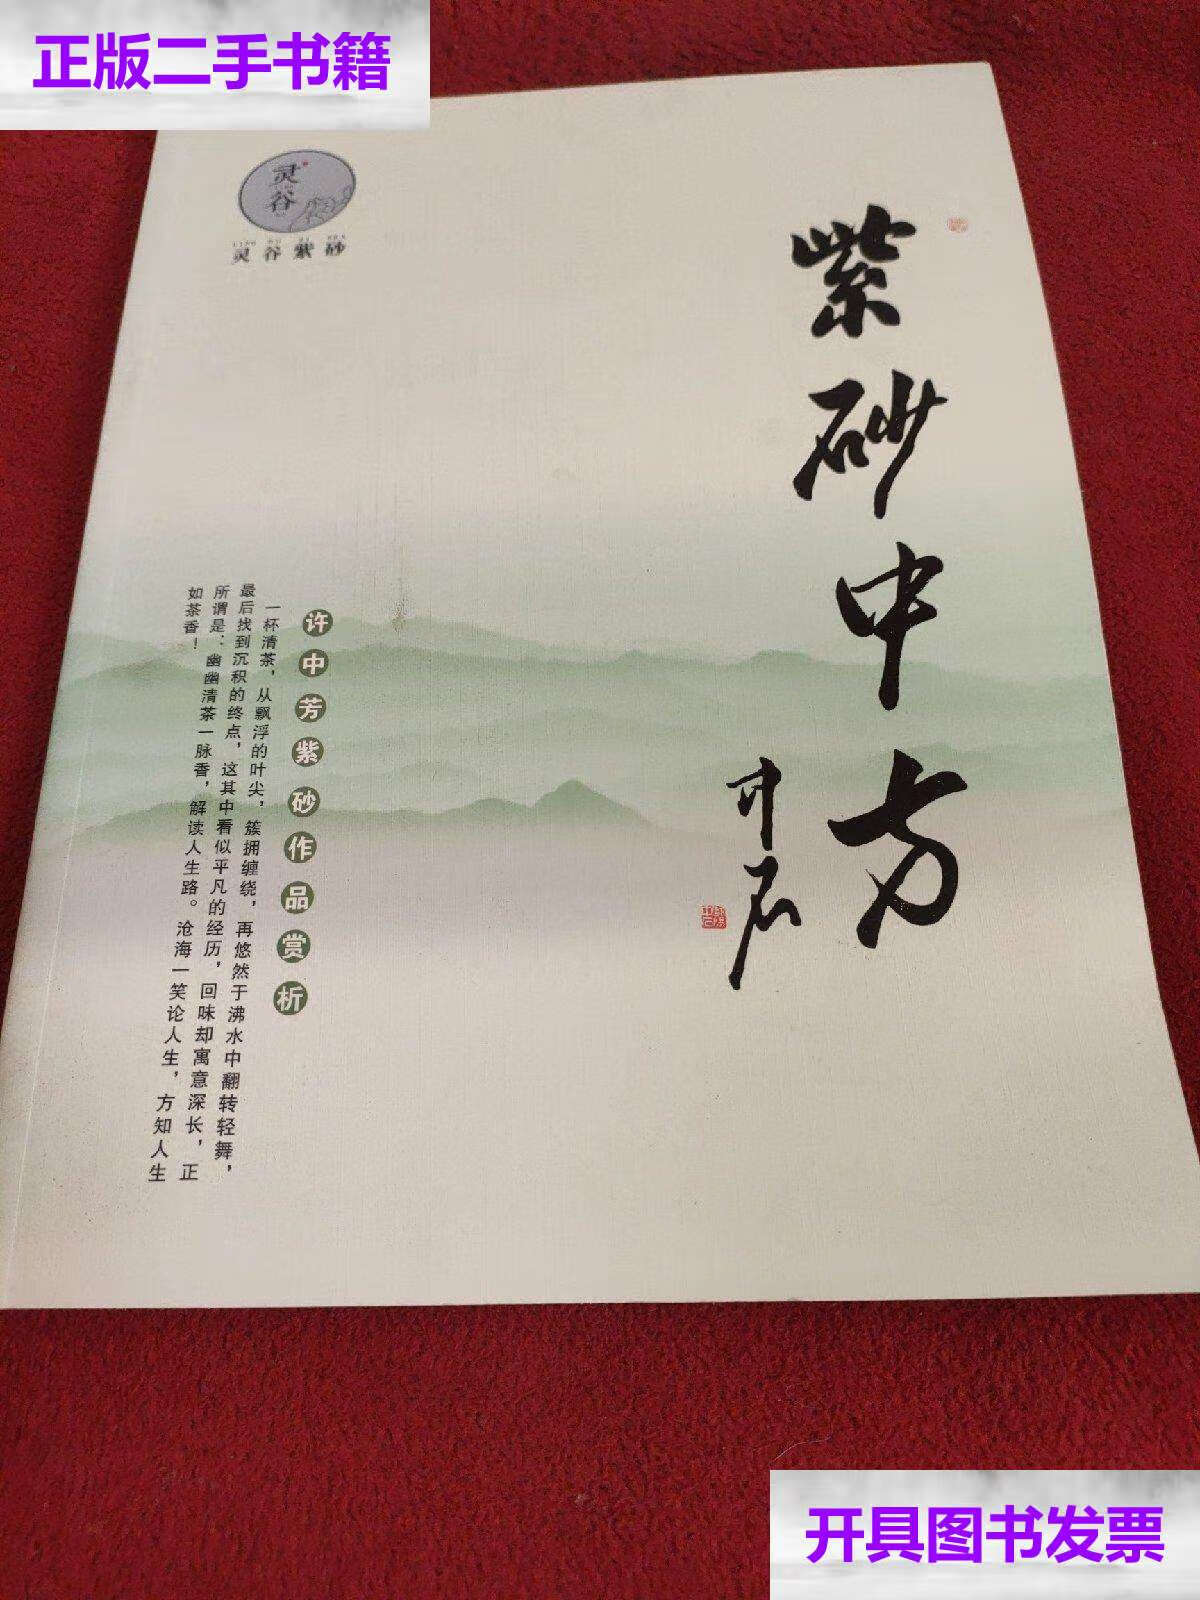 正版二手书籍
灵谷
灵谷紫砂
紫砂中方
许中芳紫砂作品赏析
一杯清茶，从飘浮的叶尖，簇拥缠绕，再悠然于沸水中翻转轻舞，
最后找到沉积的终点，这其中看似平凡的经历，回味却寓意深长，正
所谓是：幽幽清茶一脉香，解读人生路。沧海一笑论人生，方知人生
如茶香！
开具图书发票